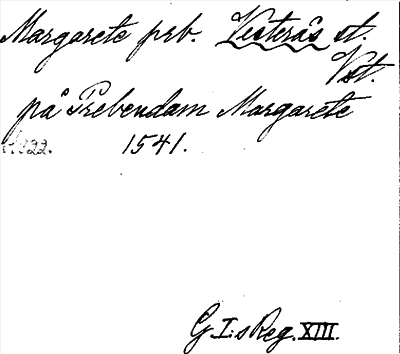 Margarete prb. Vesterås st.
Vst.
på Prebendam Margarete
s. 322. 1541.
G. I:s Reg. XIII.